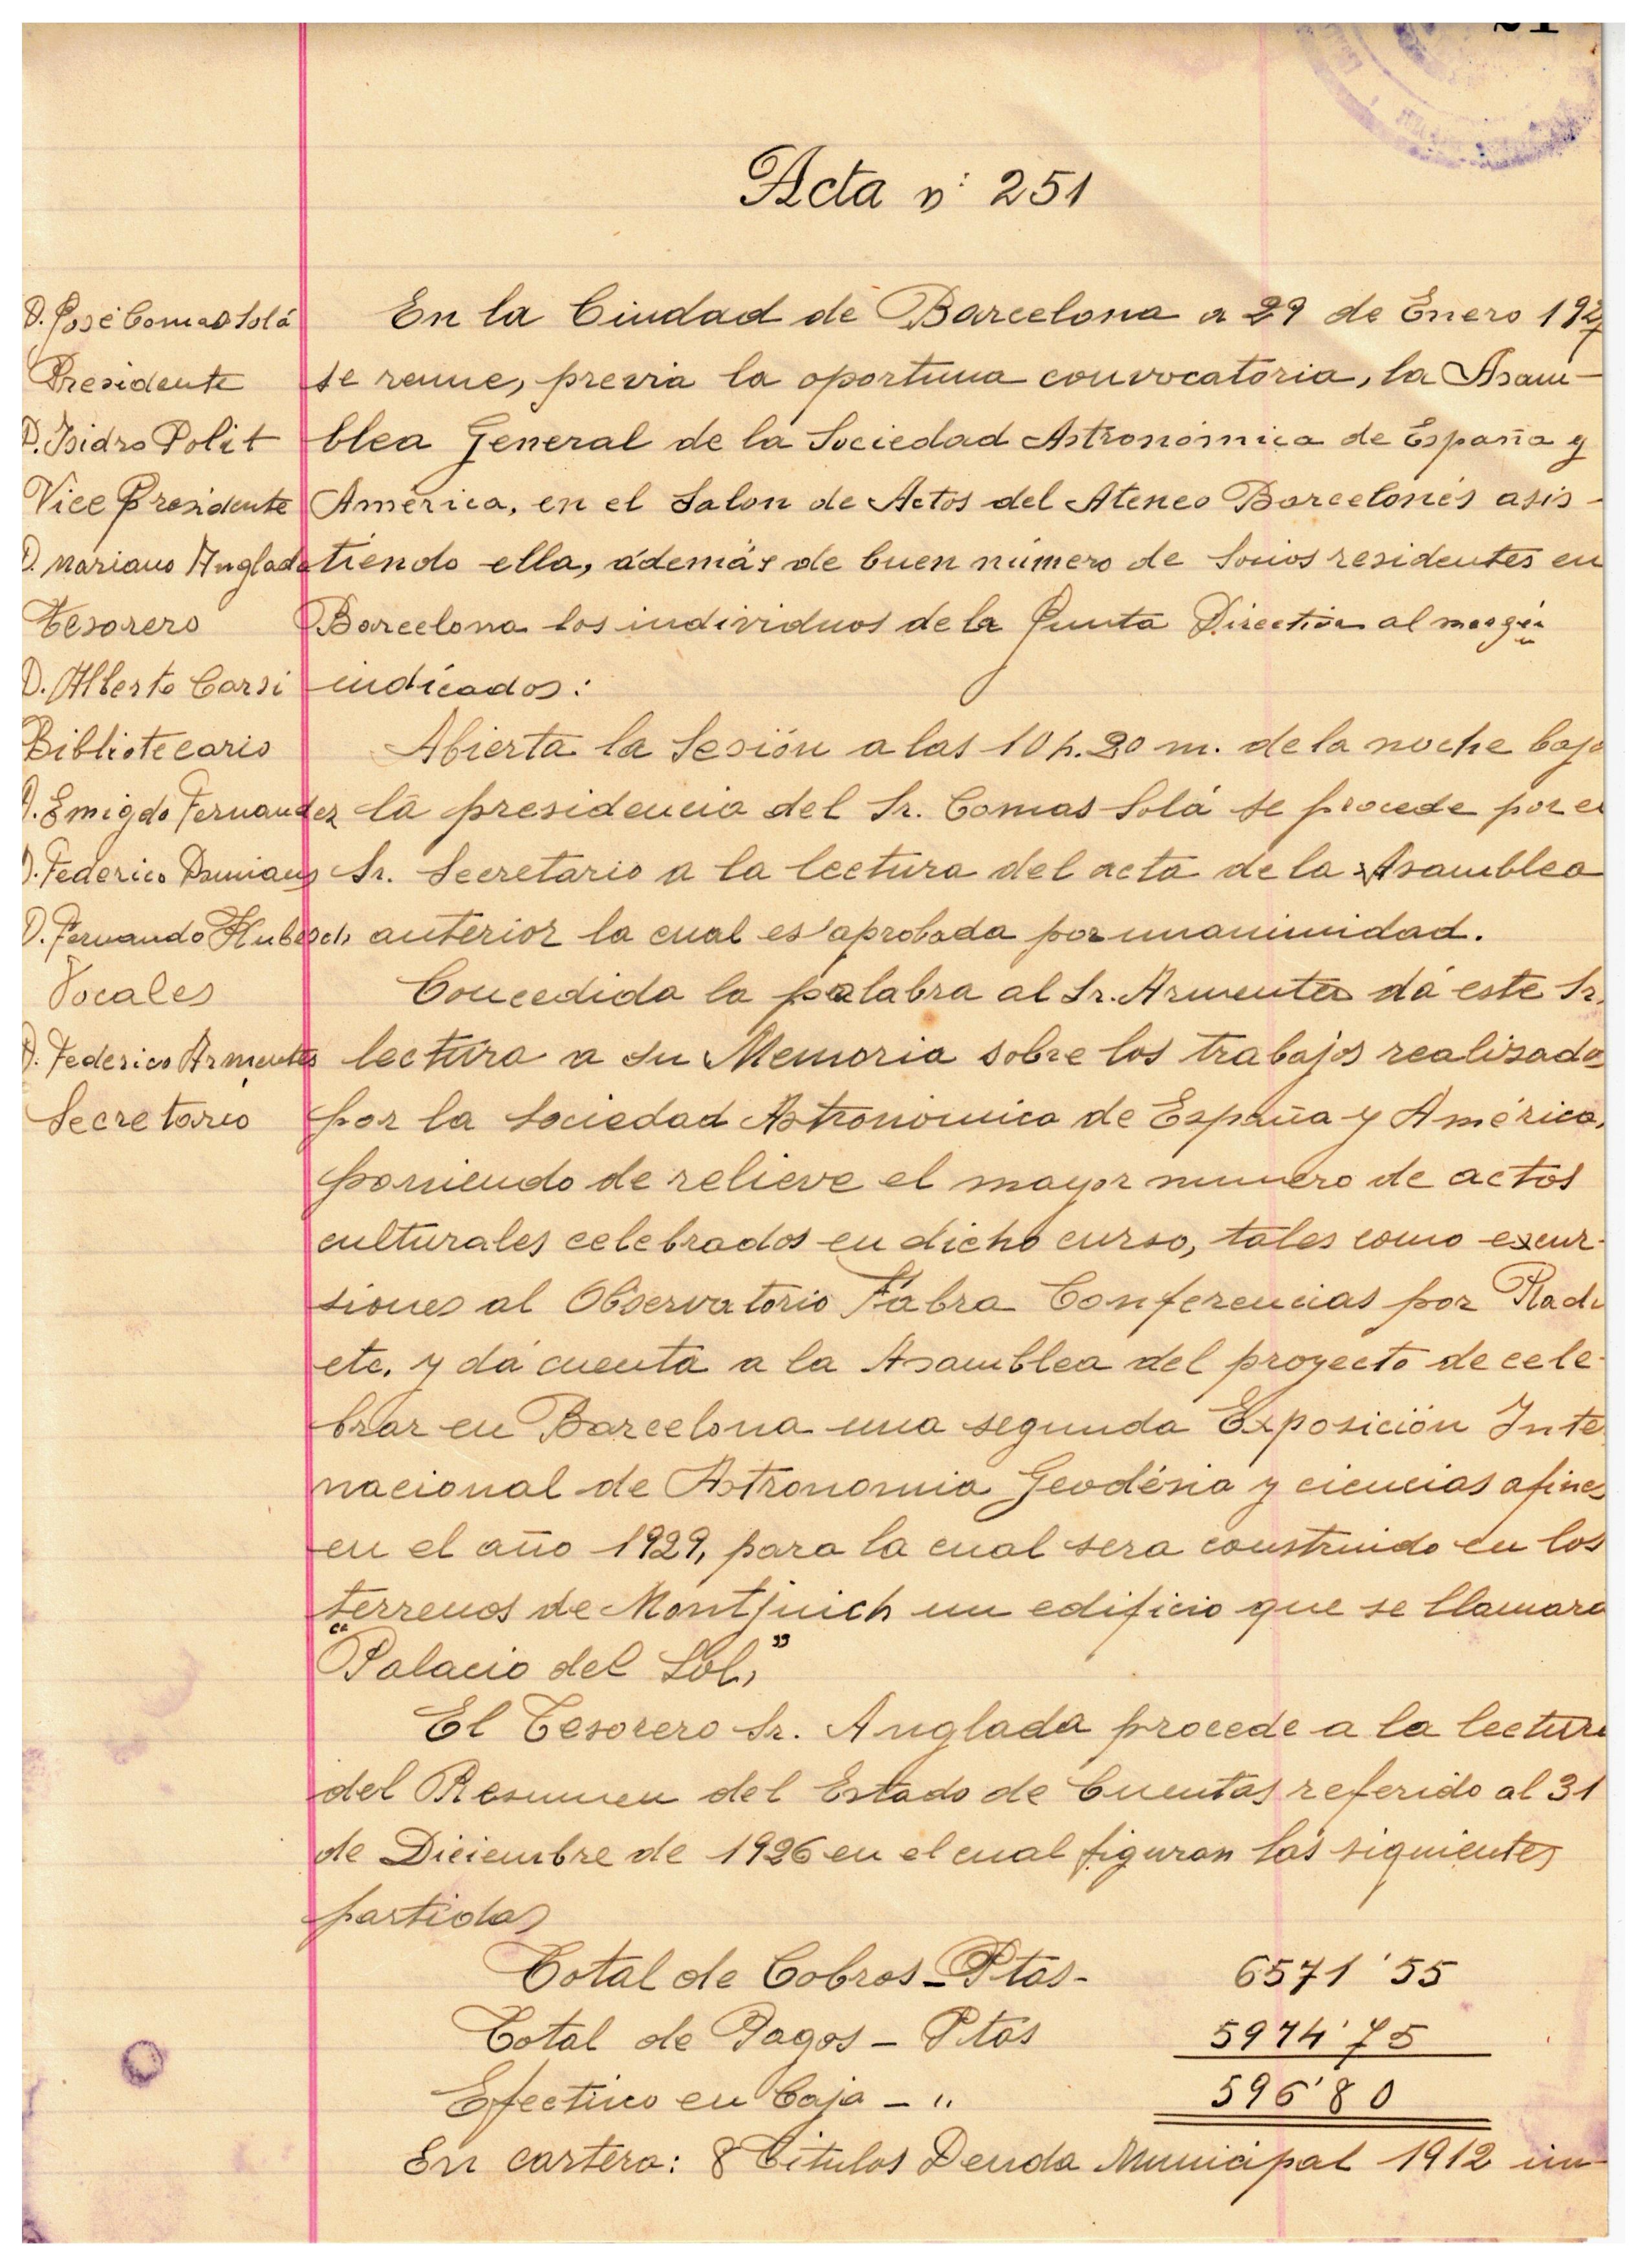 Acta nº 251
D. José Comas Solá
Presidente
D. Isidro Polit
Vice Presidente
D. Mariano Anglada
Tesorero
D. Alberto Carsi
Bibliotecario
D. Emigdo Fernandez
D. Federico Damians
D. Fernando Hubsch
Vocales
D. Federico Armenter
Secretario
En la Ciudad de Barcelona a 29 de Enero 1927
se reune, previa la oportuna convocatoria, la Asam-
blea General de la Sociedad Astronómica de España y
América, en el Salon de Actos del Ateneo Barcelonés asis-
tiendo ella, además de buen número de Socios residentes en
Barcelona los individuos de la Junta Directiva al margen
indicados:
Abierta la Sesión a las 10 h. 20 m. de la noche bajo
la presidencia del Sr. Comas Solá se procede por el
Sr. Secretario a la lectura del acta de la Asamblea
anterior la cual es aprobada por unanimidad.
Concedida la palabra al Sr. Armenter dá este Sr.
lectura a su Memoria sobre los trabajos realizados
por la Sociedad Astronómica de España y América,
poniendo de relieve el mayor numero de actos
culturales celebrados en dicho curso, tales como excur-
siones al Observatorio Fabra Conferencias por Radio
etc. y dá cuenta a la Asamblea del proyecto de cele-
brar en Barcelona una segunda Exposición Inter
nacional de Astronomia Geodésia y ciencias afines
en el año 1929, para la cual sera construido en los
terrenos de Montjuich un edificio que se llamara
"Palacio del Sol",
El Tesorero Sr. Anglada procede a la lectura
del Resumen del Estado de Cuentas referido al 31
de Diciembre de 1926 en el cual figuran las siguientes
partidas
Total de Cobros - Ptas - 6571'55
Total de Pagos - Ptas 5974'75
Efectivo en Caja - " 596'80
En cartera: 8 Titulos Deuda Municipal 1912 im-